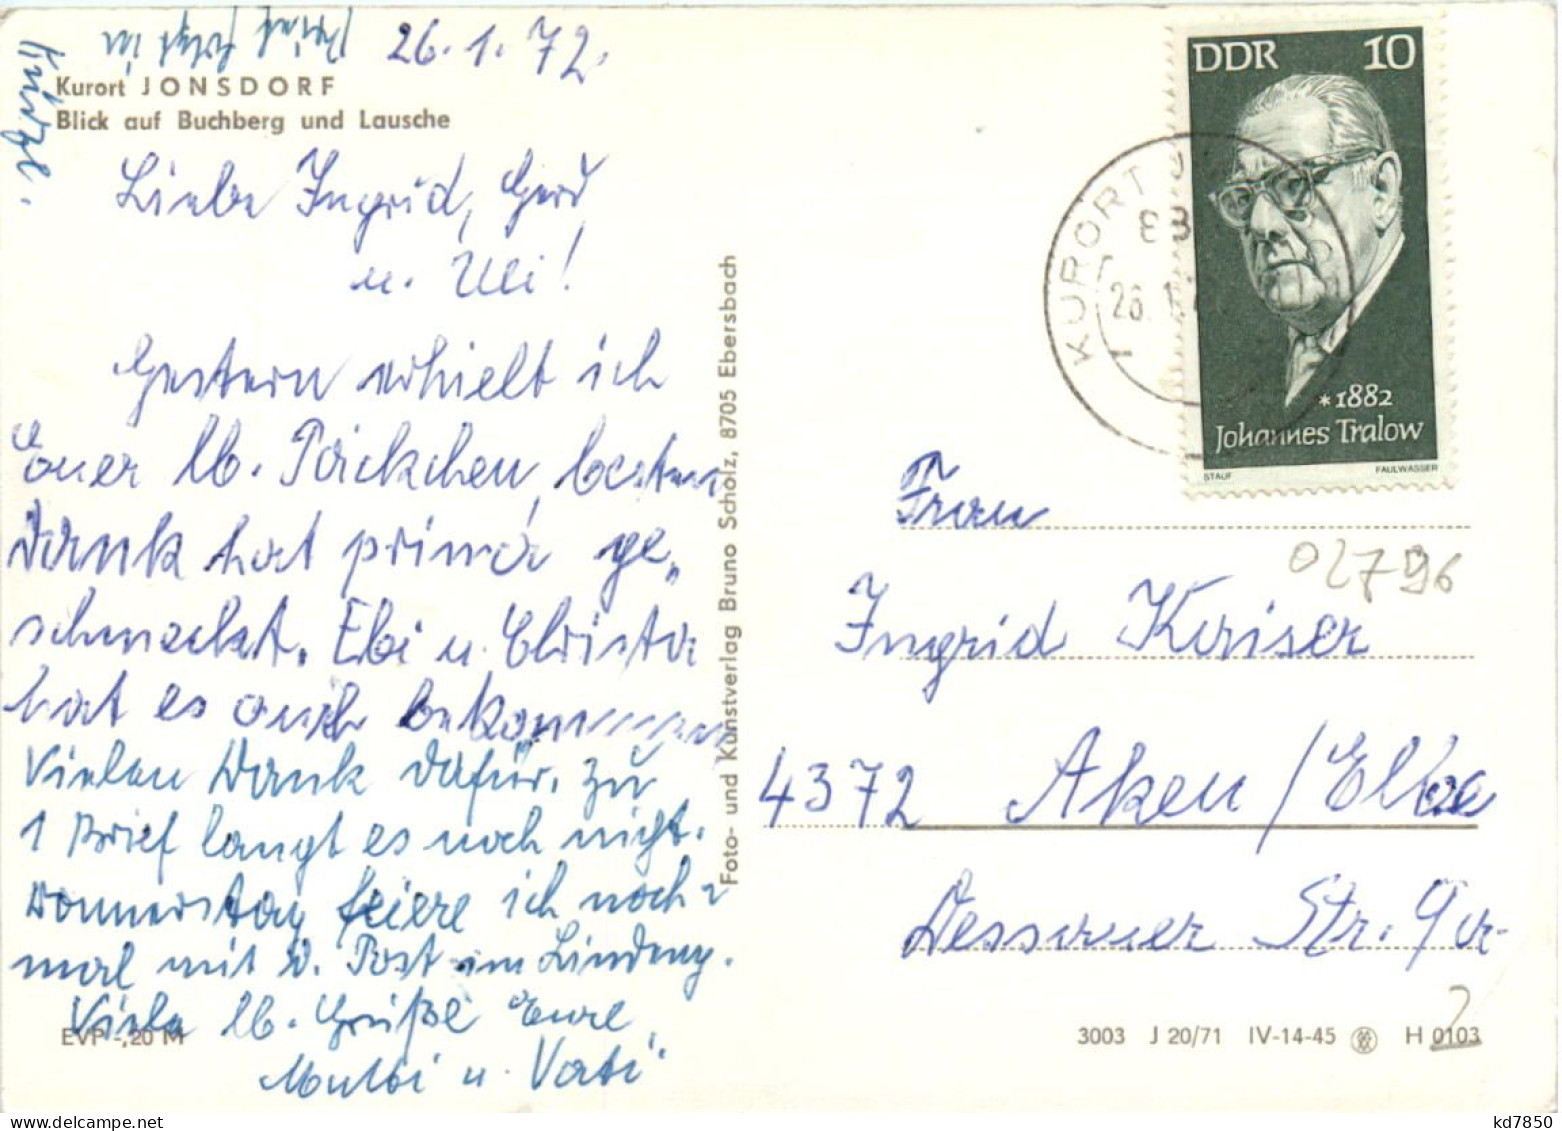 26.1.72.
Brief folgt in
Kürze.
Kurort JONSDORF
Blick auf Buchberg und Lausche
Liebe Ingrid, Gerd
u. Uli!
Gestern erhielt ich
Euer lb. Päckchen, besten
Dank hat prima ge„
schmeckt. Ebi u. Christa
hat es auch bekommen
Vielen Dank dafür. Zu
1 Brief langt es noch nicht.
Donnerstag feiere ich noch
mal mit d. Post im Lindeng.
Viele lb. Grüße Eure
Mutti u. Vati
EVP -,20 M
Foto- und Kunstverlag Bruno Scholz, 8705 Ebersbach
DDR 10
*1882
Johannes Tralow
STAUF FAULWASSER
KURORT J
26.1.
Frau
02796
Ingrid Kaiser
4372 Aken/Elbe
Dessauer Str. 9a
3003 J 20/71 IV-14-45 H 0103
2
kd7850